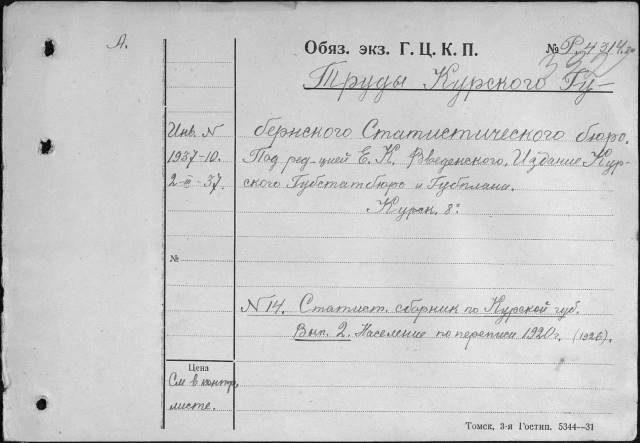 А.
Обяз. экз. Г. Ц. К. П.
№ Р.4314.20
Труды Курского Гу-
Инв. N
бернского Статистического бюро.
1937-10.
Под ред-цией Е. К. Введенского. Издание Кур-
2-II-37.
ского Губстатбюро и Губплана.
Курск. 8°
№
N 14. Статист. сборник по Курской губ.
Вып. 2. Население по переписи 1920 г. (1926).
Цена
См. в контр.
листе.
Томск, 3-я Гостип. 5344—31